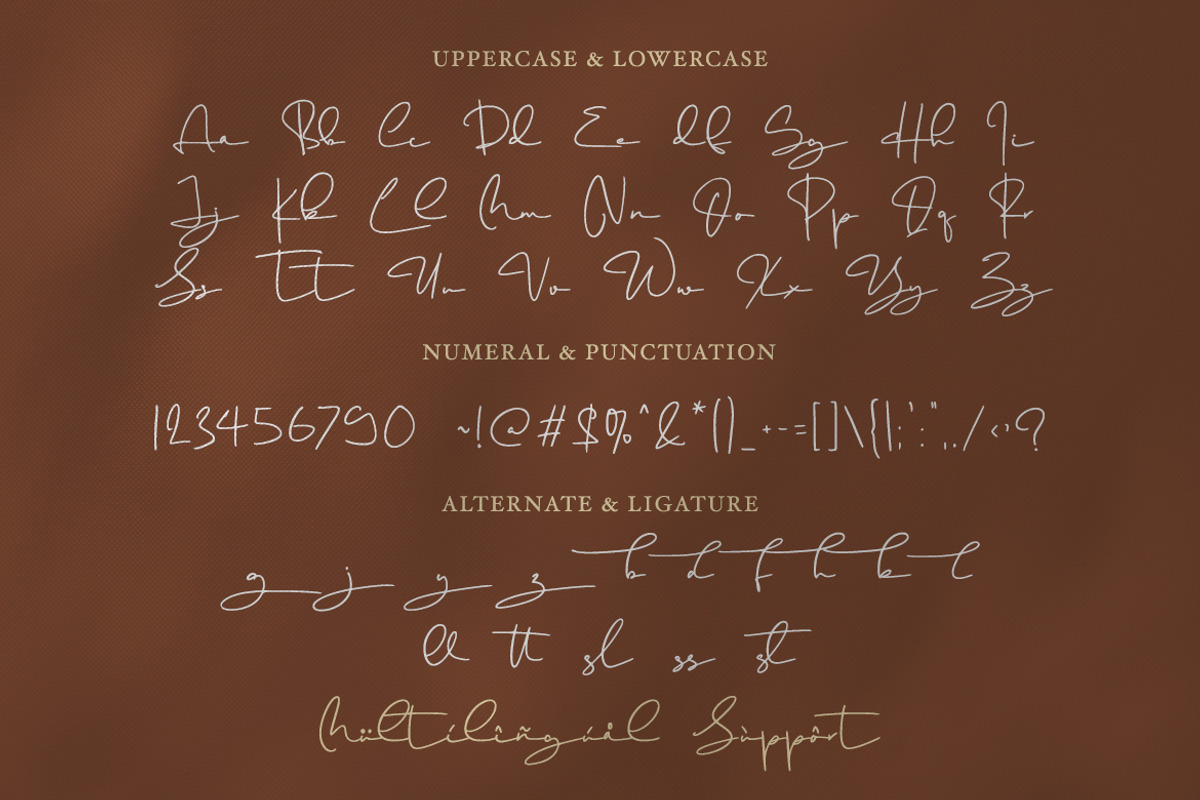 UPPERCASE & LOWERCASE
Aa Bb Cc Dd Ee Ff Gg Hh Ii
Jj Kk Ll Mm Nn Oo Pp Qq Rr
Ss Tt Uu Vv Ww Xx Yy Zz
NUMERAL & PUNCTUATION
123456790 ~!@#$%^&*()_+-=[]\{|;':",./<>?
ALTERNATE & LIGATURE
g j y z b d f h k l
ll tt sl ss st
Mültílîñgúål Sùppôrt